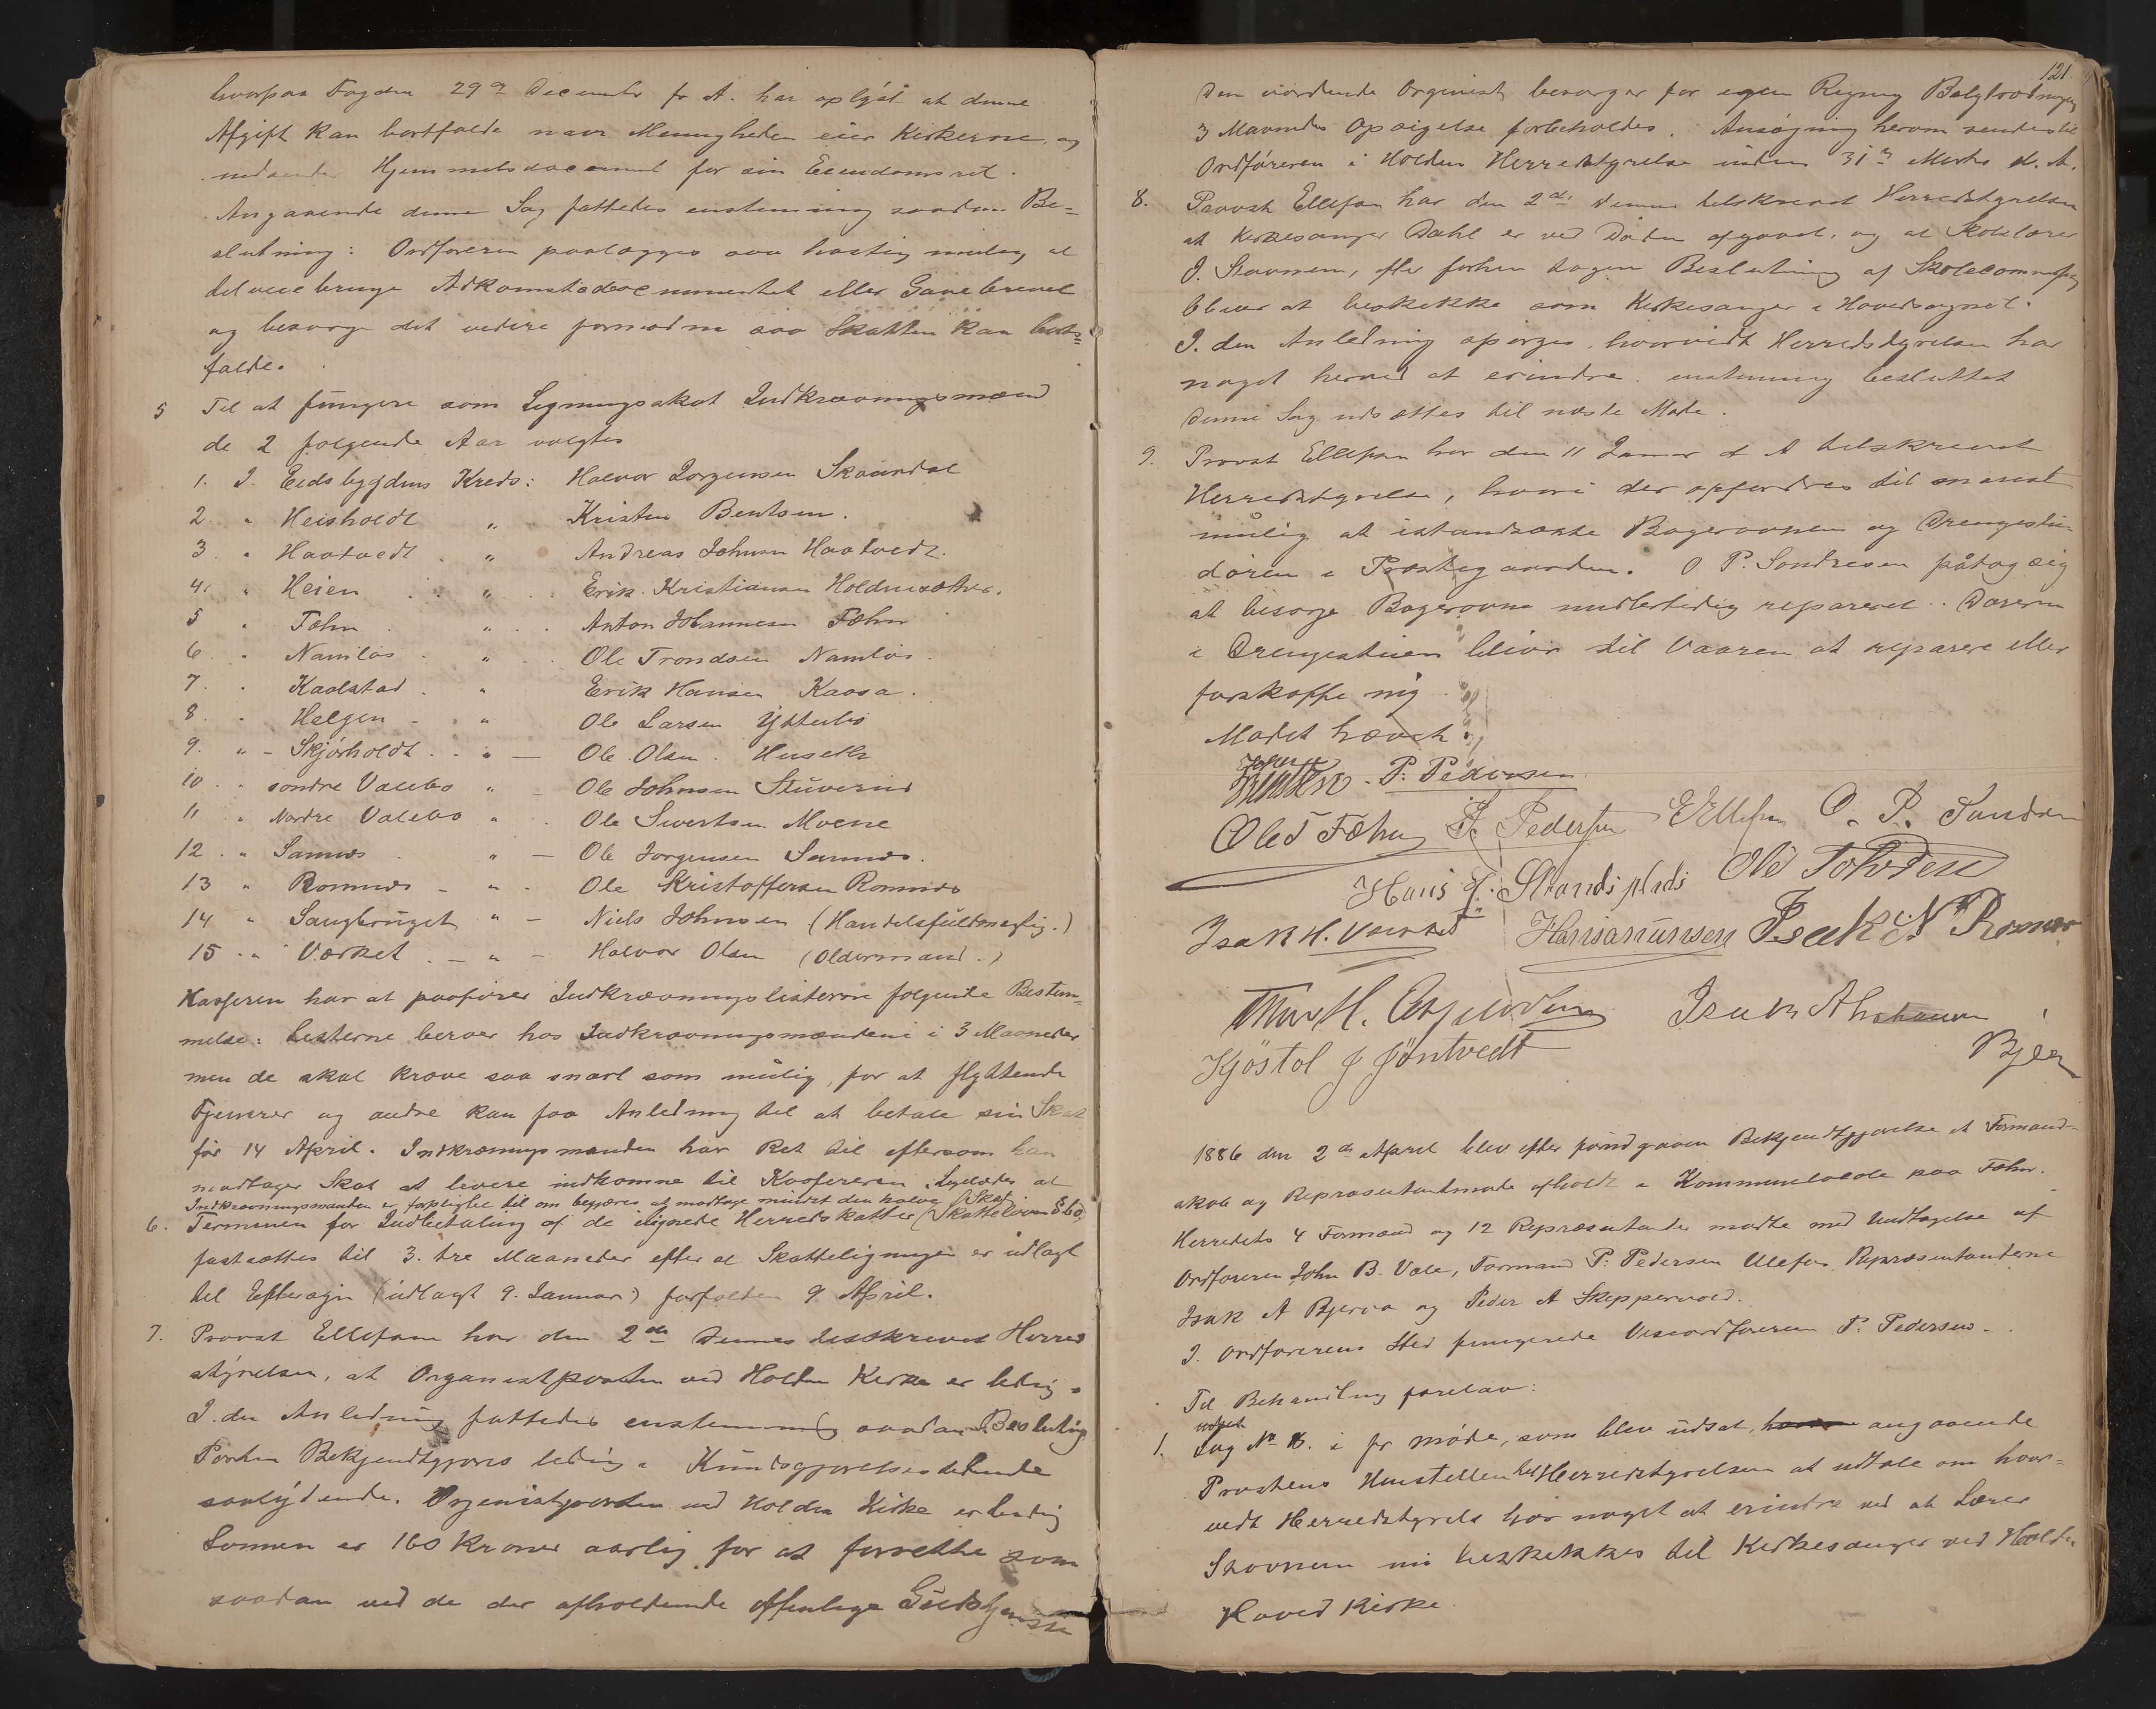 hvorpaa Fogden 29de December f. A. har oplyst at denne
Afgift kan bortfalde naar Menigheden eier Kirkerne og
nedsender Hjemmelsdocument for sin Eiendomsret.
Angaaende denne Sag fattedes enstemmig saadan Be-
slutning: Ordføreren paalægges saa hastig mulig at
tilveiebringe Adkomstdocumentet eller Gavebrevet
og besørge det videre fornødne saa Skatten kan bort-
falde.
5 Til at fungere som Ligningsskat Indkrævningsmænd
de 2 følgende Aar valgtes
1. I. Eidsbygdens Kreds: Halvor Jørgensen Skaandal
2. " Heisholdt " Kristen Bentsen.
3. " Haatvedt " Andreas Johnsen Haatvedt.
4. " Heien " Erik Kristiansen Holdensæther.
5 " Fæhn " Anton Johannesen Fæhn
6 " Namløs " Ole Trondsen Namløs.
7. " Kaalstad " Erik Hansen Kaasa.
8. " Helgen " Ole Larsen Ytterbø
9. " Skjørholdt " Ole Olsen Huseth
10 " søndre Valebø " Ole Johnsen Stuverud
11 " Nordre Valebø " Ole Sivertsen Moene
12. " Sannes " Ole Jørgensen Sannes.
13 " Romnes " Ole Kristoffersen Romnes
14 " Saugbruget " Niels Johnsen (Handelsfuldmægtig.)
15 " Værket " Halvor Olsen (Oldermand.)
Kasseren har at paaføre Indkrævningslisterne følgende Bestem-
melse: Listerne beroer hos Indkrævningsmændene i 3 Maaneder
men de skal kræve saa snart som mulig, for at flyttende
Tjenere og andre kan faa Anledning til at betale sin Skat
før 14 April. Indkrævningsmanden har Ret til eftersom han
modtager Skat at levere indkomne til Kassereren. Ligeledes at
Indkrævningsmanden er forpligtet til om begjæres at modtage mindst den halve Skat
6. Terminen for Indbetaling af de udlignede Herredsskatter (Skatteloven § 60)
fastsættes til 3. tre Maaneder efter at Skatteligningen er udlagt
til Eftersyn (udlagt 9. Januar) forfalden 9 April.
7. Provst Ellefsen har den 2den Dennes tilskrevet Herred
styrelsen, at Organistposten ved Holden Kirke er ledig.
I den Anledning fattedes enstemmig saadan Beslutnig
Posten Bekjendtgjøres ledig i Kundgjørelsestidende
saalydende. Organistposten ved Holden Kirke er ledig
Lønnen er 160 Kroner aarlig for at forrette som
saadan ved de der afholdende offentlige Gudstjeneste
121.
Den vordende Organist besørger for egen Regning Belgtrædningen
3 Maaneders Opsigelse forbeholdes. Ansøgning herom sendes til
Ordføreren i Holden Herredstyrelse inden 31te Marts d. A.
8. Provst Ellefsen har den 2de Dennes tilskrevet Herredstyrelsen
at Kirkesanger Dahl er ved Døden afgaaet, og at Skolelærer
J. Stavnem, efter forhen tagen Beslutning af Skolecommissjon
bliver at beskikke som Kirkesanger i Hovedsognet.
I den Anledning spørges, hvorvidt Herredstyrelsen har
noget herved at erindre. enstemmig besluttet
Denne Sag udsættes til næste Møde.
9. Provst Ellefsen har den 11 Januar d A tilskrevet
Herredstyrelsen, hvori der opfordres til snarest
mulig at istandsætte Bagerovnen og Drengestu-
døren i Præstegaarden. O P. Sondresen påtog sig
at besørge Bagerovne midlertidig repareret. Døren
i Drengestuen bliver til Vaaren at reparere eller
forskaffe nÿ
Mødet hævet.
P. Pedersen
Ole T Fæhn P. Pedersen E Ellefsen O. P. Sondresen
Hans J. Strandsplads Ole Tovsten
Isak H. Hansamunsen Isak N Romnes
Thor H. Isak A
Bjerva
Kjöstol J Jöntvedt
1886 den 2de April blev efter forudgaaen Bekjendtgjørelse et Formand-
skab og Repræsentantmøde afholdt i Kommunelokale paa Fæhn.
Herredets 4 Formænd og 12 Repræsentanter mødte med Undtagelse af
Ordføreren John B. Vale, Formand P. Pedersen Ulefos, Repræsentanterne
Isak A Bjerva og Peder A Skippervold.
I Ordførerens Sted fungerede Viseordføreren P. Pedersen.
Til Behandling forelaa:
1. Sag No 8. i f. møde, som blev udsat, angaaende
Provstens Henstillen til Herredstyrelsen at udtale om hvor-
vidt Herredstyrels har noget at erindre ved at Lærer
Stavnem nu beskikkes til Kirkesanger ved Holden
Hoved Kirke